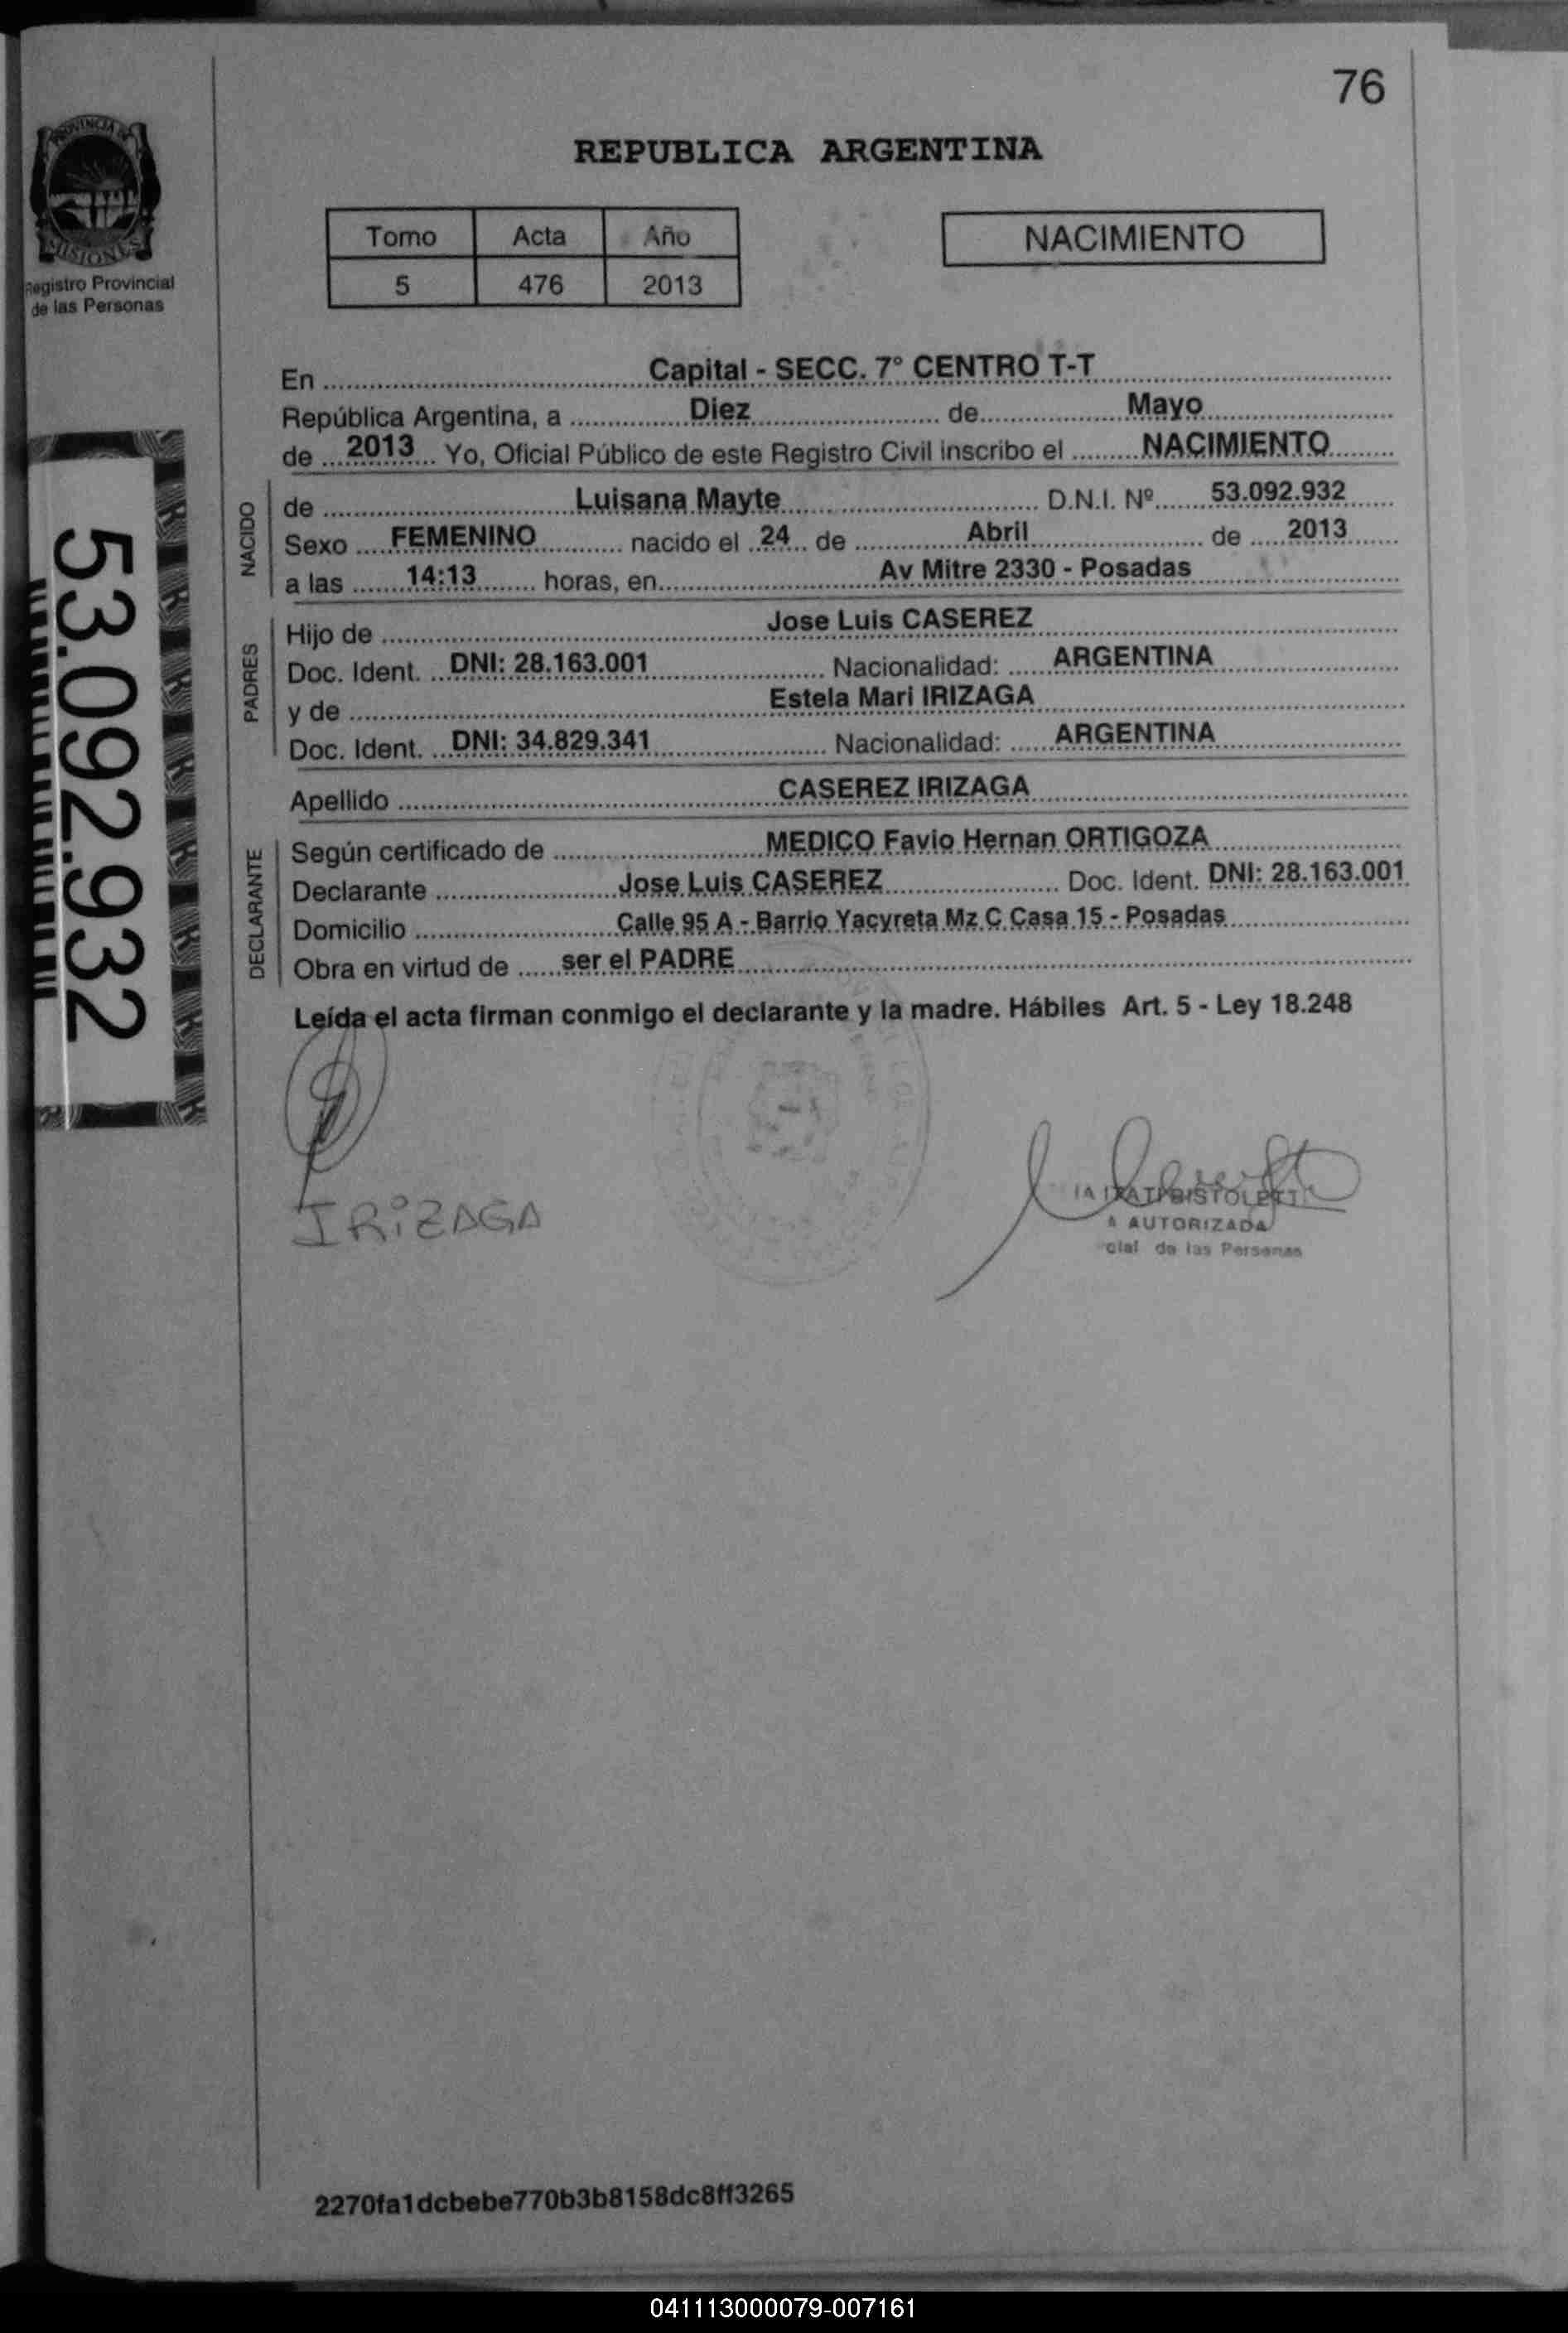 76
REPUBLICA ARGENTINA
PROVINCIA DE
MISIONES
Registro Provincial
de las Personas
Tomo Acta Año
5 476 2013
NACIMIENTO
En Capital - SECC. 7° CENTRO T-T
República Argentina, a Diez de Mayo
de 2013 Yo, Oficial Público de este Registro Civil inscribo el NACIMIENTO
NACIDO
de Luisana Mayte D.N.I. Nº 53.092.932
Sexo FEMENINO nacido el 24 de Abril de 2013
a las 14:13 horas, en Av Mitre 2330 - Posadas
PADRES
Hijo de Jose Luis CASEREZ
Doc. Ident. DNI: 28.163.001 Nacionalidad: ARGENTINA
y de Estela Mari IRIZAGA
Doc. Ident. DNI: 34.829.341 Nacionalidad: ARGENTINA
Apellido CASEREZ IRIZAGA
DECLARANTE
Según certificado de MEDICO Favio Hernan ORTIGOZA
Declarante Jose Luis CASEREZ Doc. Ident. DNI: 28.163.001
Domicilio Calle 95 A - Barrio Yacyreta Mz C Casa 15 - Posadas
Obra en virtud de ser el PADRE
Leída el acta firman conmigo el declarante y la madre. Hábiles Art. 5 - Ley 18.248
53.092.932
IRiZAGA
A AUTORIZADA
cial de las Personas
2270fa1dcbebe770b3b8158dc8ff3265
041113000079-007161